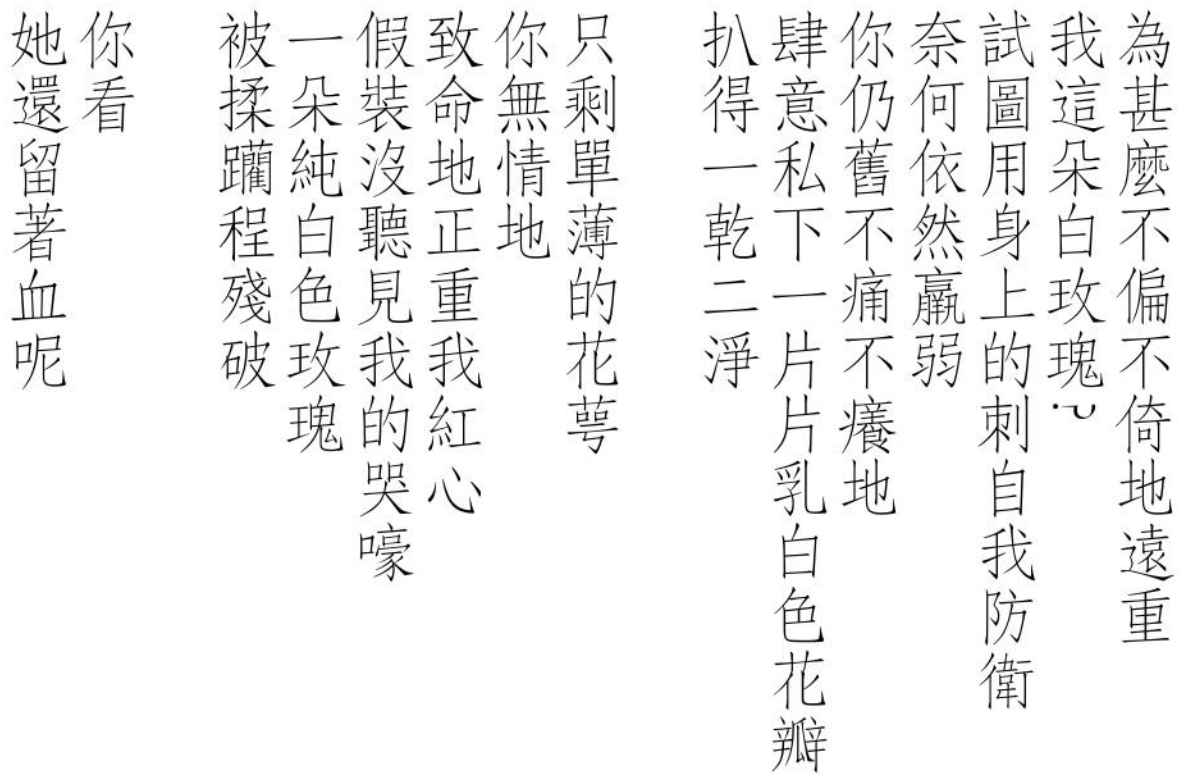 為甚麼不偏不倚地遠重
我這朵白玫瑰？
試圖用身上的刺自我防衛
奈何依然羸弱
你仍舊不痛不癢地
肆意私下一片片乳白色花瓣
扒得一乾二淨
只剩單薄的花萼
你無情地
致命地正重我紅心
假裝沒聽見我的哭嚎
一朵純白色玫瑰
被揉躪程殘破
你看
她還留著血呢